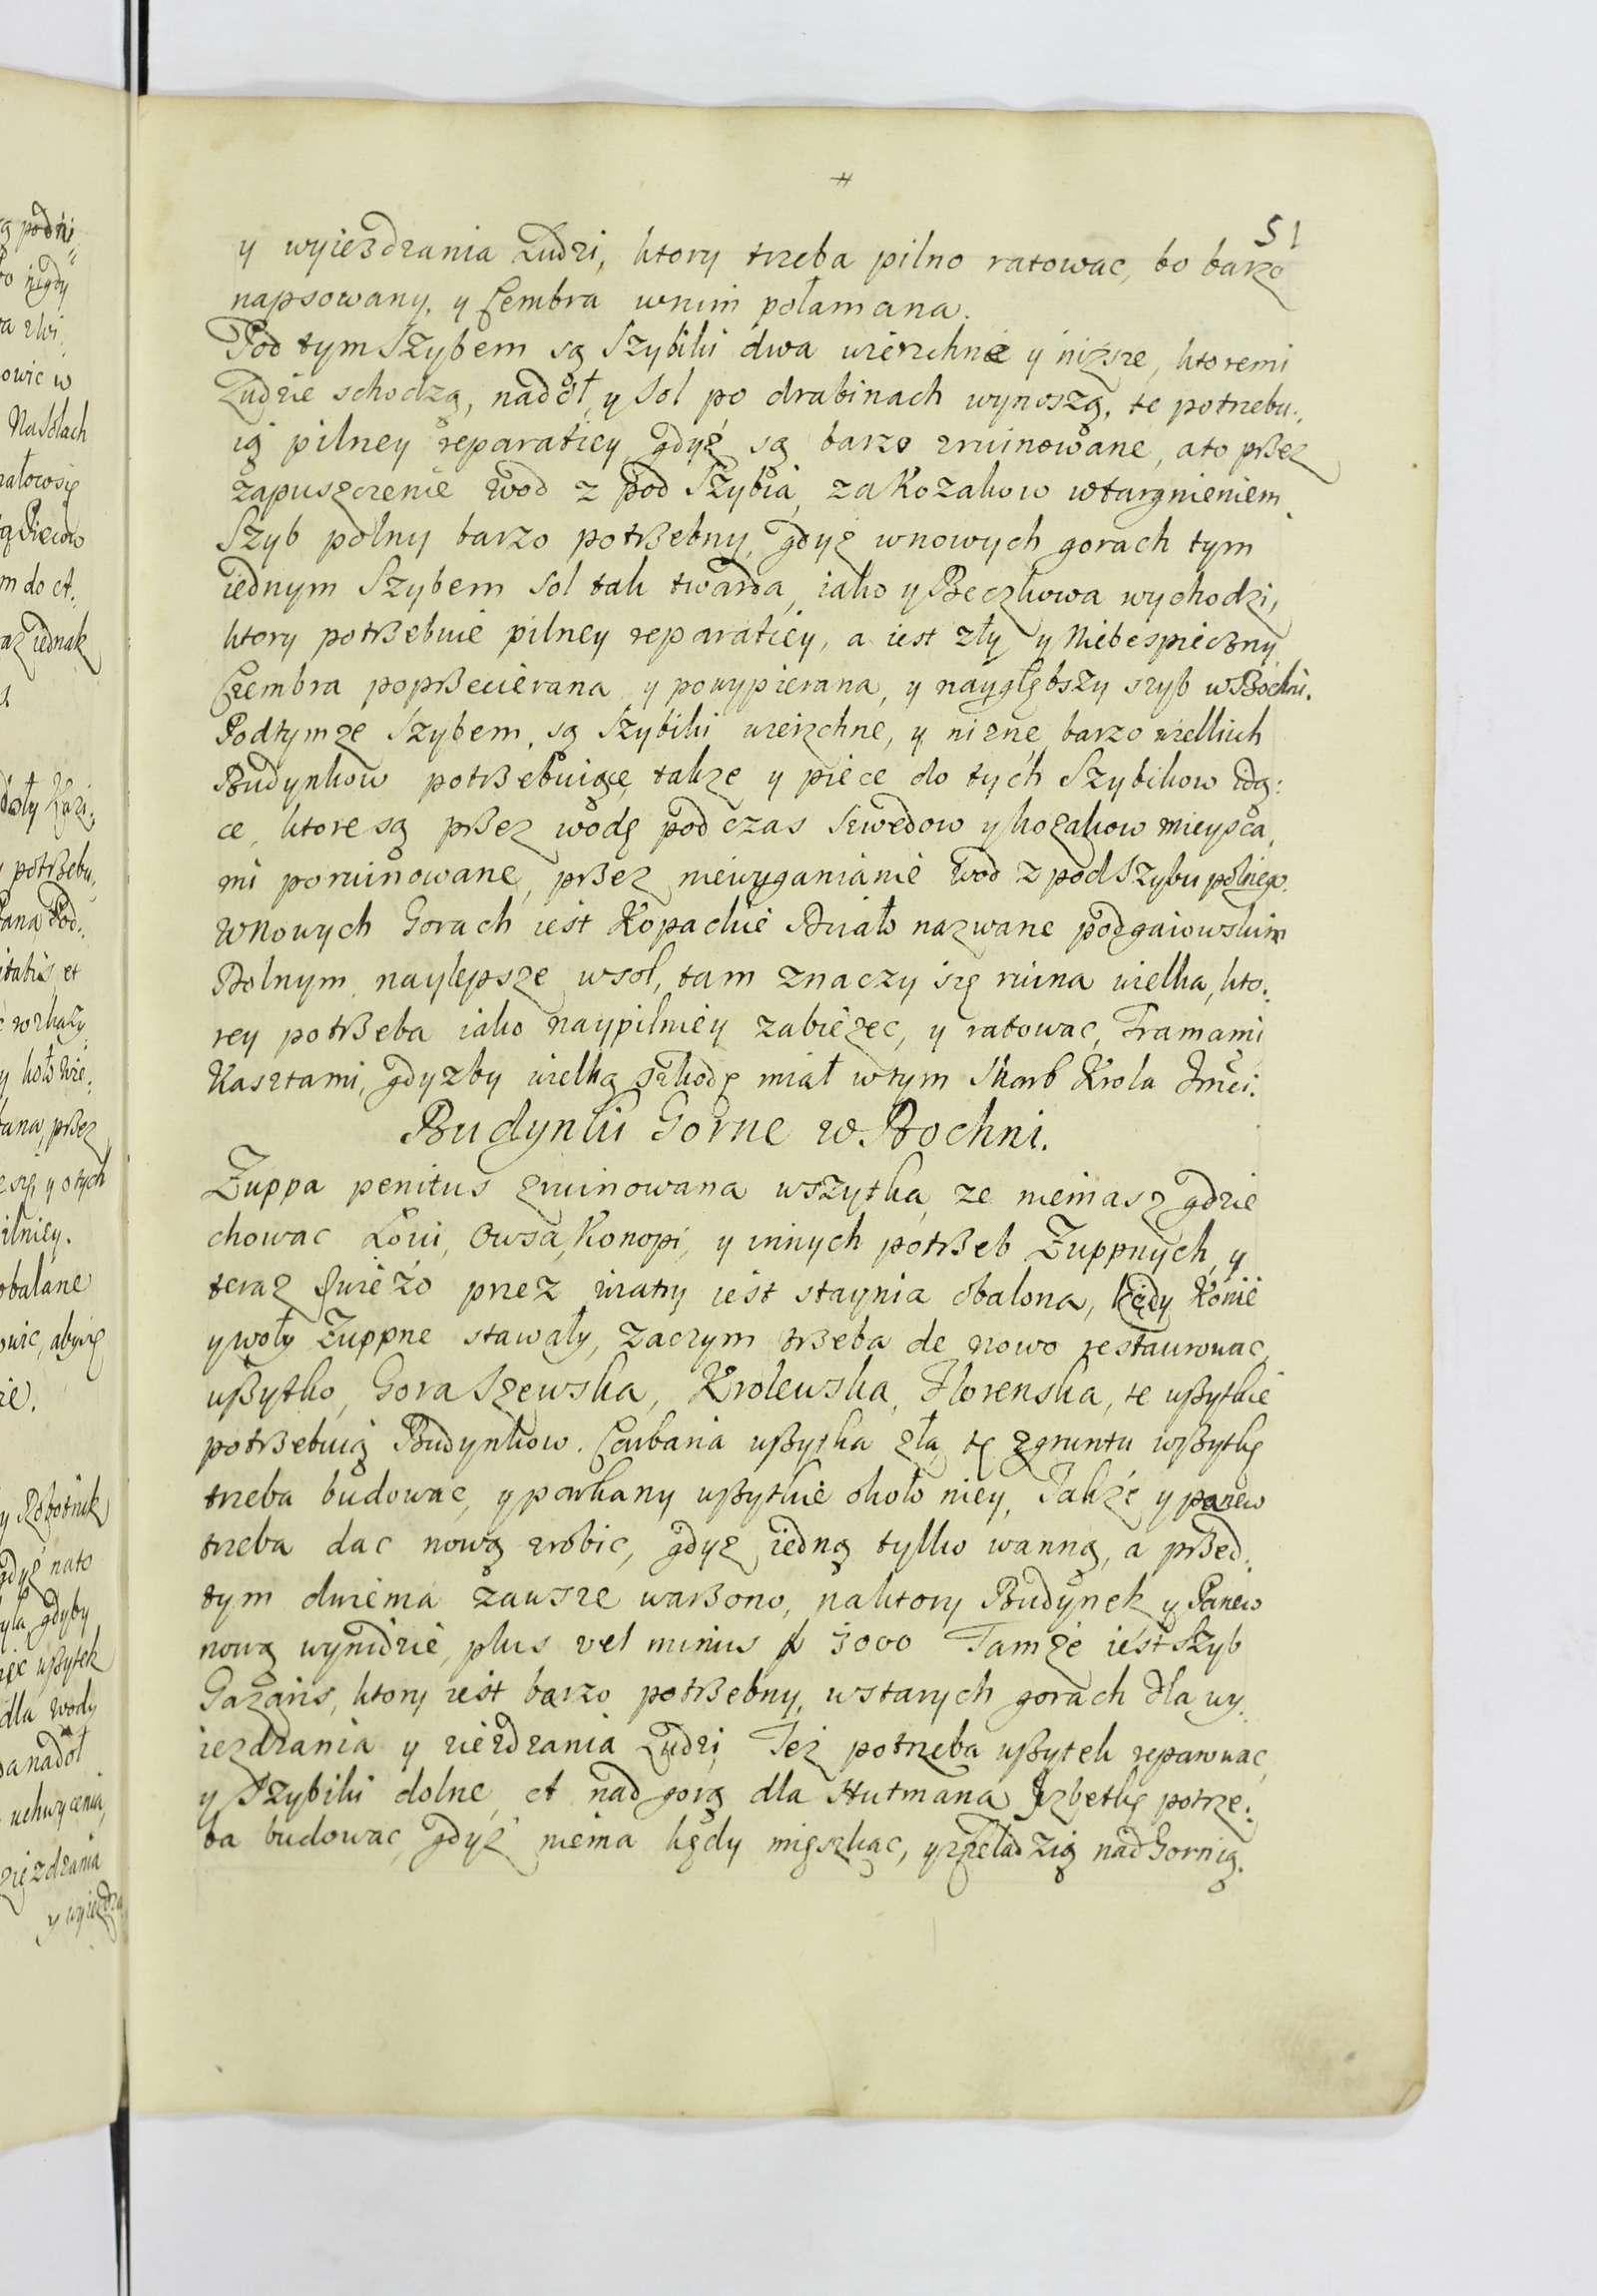 51
y wyiezdzania Ludzi, ktory trzeba pilno ratowac, bo barzo
napsowany, y Cembra wnim połamana.
Pod tym Szybem są Szybiki dwa wierzchnie y niższe, ktoremi
Ludzie schodzą, nadół, y Sol po drabinach wynoszą, te potrzebu:
ią pilney reparatiey, gdyż są barzo zruinowane, a to przez
zapuszczenie wod z pod Szybia, za Kozakow wtargnieniem.
Szyb polny barzo potrzebny, gdyż wnowych gorach tym
iednym Szybem Sol tak twarda, iako y Beczkowa wychodzi,
ktory potrzebuie pilney reparatiey, a iest zły y Niebespieczny
Czembra poprzecierana y powypierana, y naygłębszy szyb w Bochni.
Podtymze Szybem, są Szybiki wierzchne, y nizne, barzo wielkich
Budynkow potrzebuiące, takze y piece do tych Szybikow idą:
ce, ktore są przez wodę pod czas Szwedow y kozakow mieysca,
mi poruinowane, przez niewyganianie wod z pod Szybu polnego.
Wnowych Gorach iest Kopackie Działo nazwane podgaiowskim
Dolnym, naylepsze wsol, tam znaczy się ruina wielka, kto:
rey potrzeba iako naypilniey zabiezec, y ratowac, Tramami
Kasztami, gdyzby wielką szkodę miał wtym Skarb Krola Jmći.
Budynki Gorne w Bochni.
Zuppa penitus zruinowana wszytka, ze niemasz gdzie
chowac Łoiu, Owsa, Konopi, y innych potrzeb Zuppnych, y
teraz swieżo przez wiatry iest staynia obalona, kędy Konie
y woły Zuppne stawały, zaczym trzeba de nowo restaurowac,
wszytko, Gora Szewska, Krolewska, Florenska, te wszytkie
potrzebuią Budynkow. Carbaria wszytka zła, tę zgruntu wszytkę
trzeba budowac, y parkany wszytkie około niey, Także y panew
trzeba dac nową zrobic, gdyz iedną tylko wanną, a przed:
tym dwiema zawsze warzono, naktory Budynek y Panew
nową wynidzie, plus vel minus f 3000 Tamże iest Szyb
Gazaris, ktory iest barzo potrzebny, wstarych gorach dla wy:
iezdzania y ziezdzania Ludzi, Też potrzeba wszytek reparowac,
y Szybiki dolne, et nad gorą dla Hutmana Jzbetkę potrze:
ba budowac, gdyż niema kędy mięszkac, y z czeladzią nad Gornią.